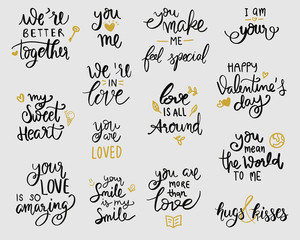 we're
BETTER
Together
you
&
me
you make
ME
feel special
I am
yours
we're
IN
love
my
Sweet
Heart
you
are
LOVED
love
IS ALL
Around
HAPPY
Valentine's
day
you
mean
the world
TO ME
your
LOVE
IS SO
amazing
your
Smile
is my
Smile
YOU ARE
more
than
Love
hugs & kisses